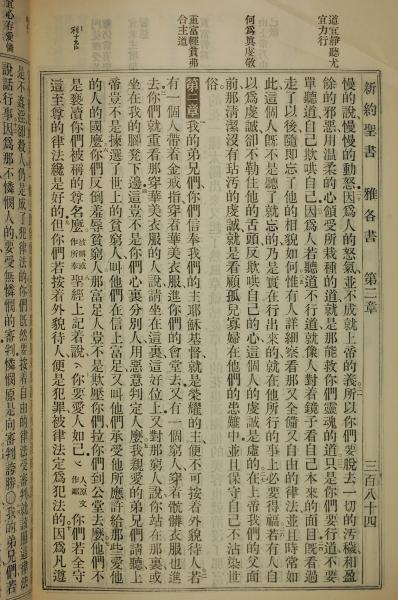 新約聖書 雅各書 第二章 三百八十四
道宜靜聽尤宜力行
何爲眞虔敬
重富輕貧弗合主道
利十九章
慢的說慢慢的動怒因爲人的怒氣並不成就上帝的義所以你們要脫去一切的汚穢和盈
餘的邪惡用溫柔的心領受所栽種的道就是那能救你們靈魂的道只是你們要行道不要
單聽道自己欺哄自己因爲人若聽道不行道就像人對着鏡子看自己本來的面目旣看過
走了以後隨卽忘了他的相貌如何惟有人詳細察看那又全備又自由的律法並且時常如
此這個人旣不是聽了就忘的乃是實在行出來的就在他所行的事上必要得福若有人自
以爲虔誠卻不勒住他的舌頭反欺哄自己的心這個人的虔誠是虛的在上帝我們的父面
前那淸潔沒有玷汚的虔誠就是看顧孤兒寡婦在他們的患難中並且保守自己不沾染世
俗
第二章 我的弟兄們你們信奉我們的主耶穌基督就是榮耀的主便不可按着外貌待人若
有一個人帶着金戒指穿着華美衣服進你們的會堂去又有一個窮人穿着骯髒衣服也進
去你們就重看那穿華美衣服的人說請坐在這裏好位上又對那窮人說你站在那裏或
坐在我的腳凳下邊這豈不是你們心裏分別人用惡意判定人麽我親愛的弟兄們請聽上
帝豈不是揀選了世上的貧窮人叫他們在信上富足又叫他們承受他所應許給那些愛他
的人的國麽你們反倒羞辱貧窮人那富足人豈不是欺壓你們拉你們到公堂去麽他們不
是褻瀆你們被稱的尊名麽 聖經上記着說你要愛人如己 你們若全守
這至尊的律法纔是好的但你們若按着外貌待人便是犯罪被律法定爲犯法的因爲凡遵
是不姦淫卻殺人仍是成了犯律法的你們旣然要按着自由的律法受審判就該照這律法
說話行事因爲那不憐憫人的要受無憐憫的審判憐憫原是向審判誇勝○我的弟兄們若